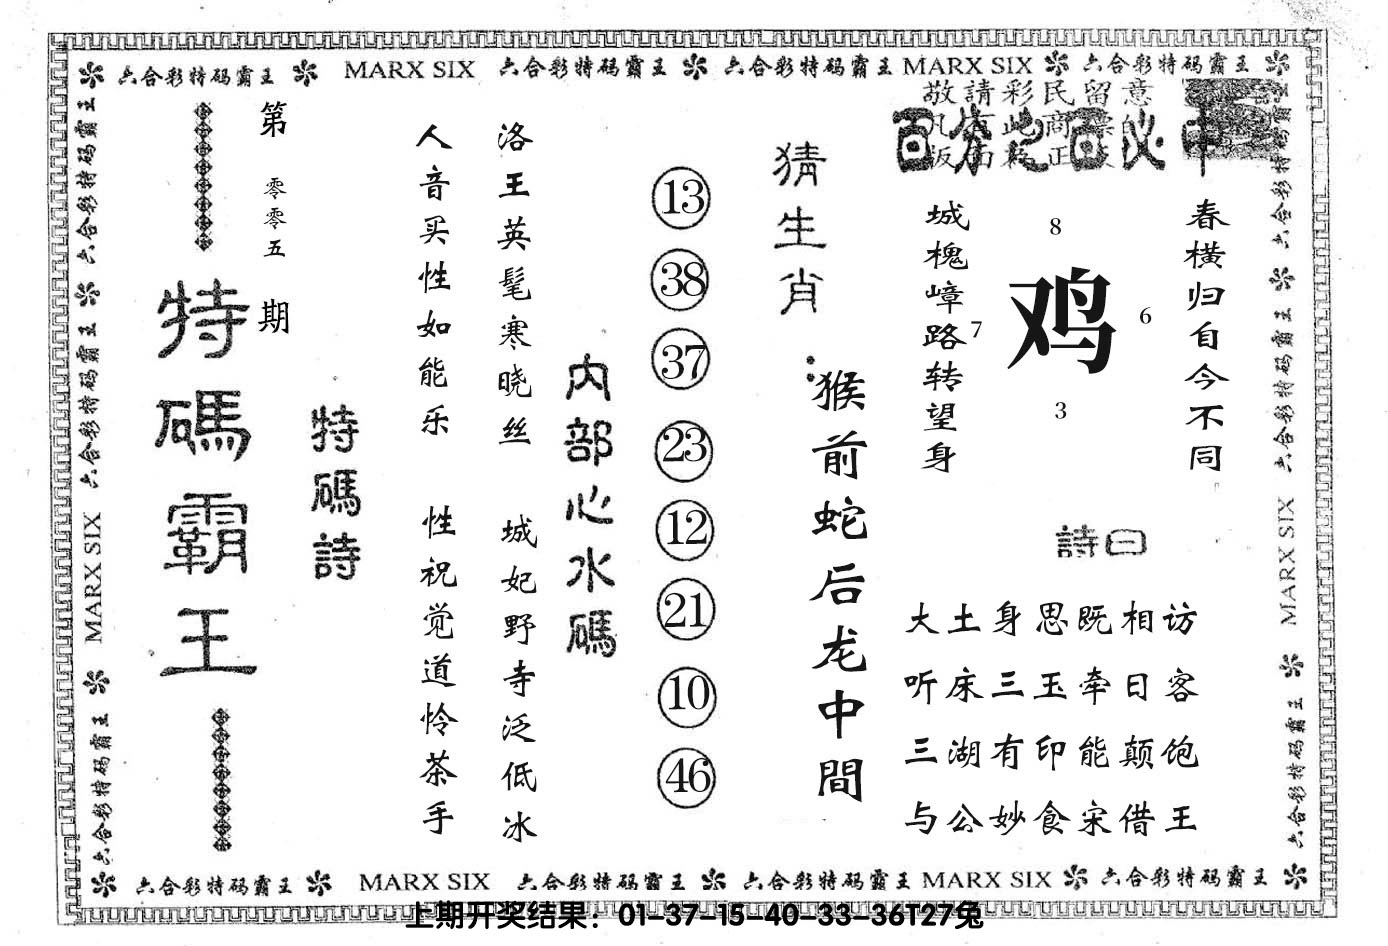 六合彩特码霸王 MARX SIX 六合彩特码霸王 六合彩特码霸王 MARX SIX 六合彩特码霸王
敬請彩民留意
春横归自今不同
城槐嶂路转望身
8
7
鸡
6
3
詩曰
大土身思既相访
听床三玉牵日客
三湖有印能颠饱
与公妙食宋借王
猜生肖：
猴前蛇后龙中間
13
38
37
23
12
21
10
46
内部心水碼
洛王英髦寒晓丝
城妃野寺泛低冰
人音买性如能乐
性祝觉道怜茶手
特碼詩
第零零五期
特碼霸王
六合彩特码霸王 六合彩特码霸王 MARX SIX 六合彩特码霸王
六合彩特码霸王 六合彩特码霸王 MARX SIX 六合彩特码霸王
六合彩特码霸王 MARX SIX 六合彩特码霸王 六合彩特码霸王 MARX SIX 六合彩特码霸王
上期开奖结果：01-37-15-40-33-36T27兔